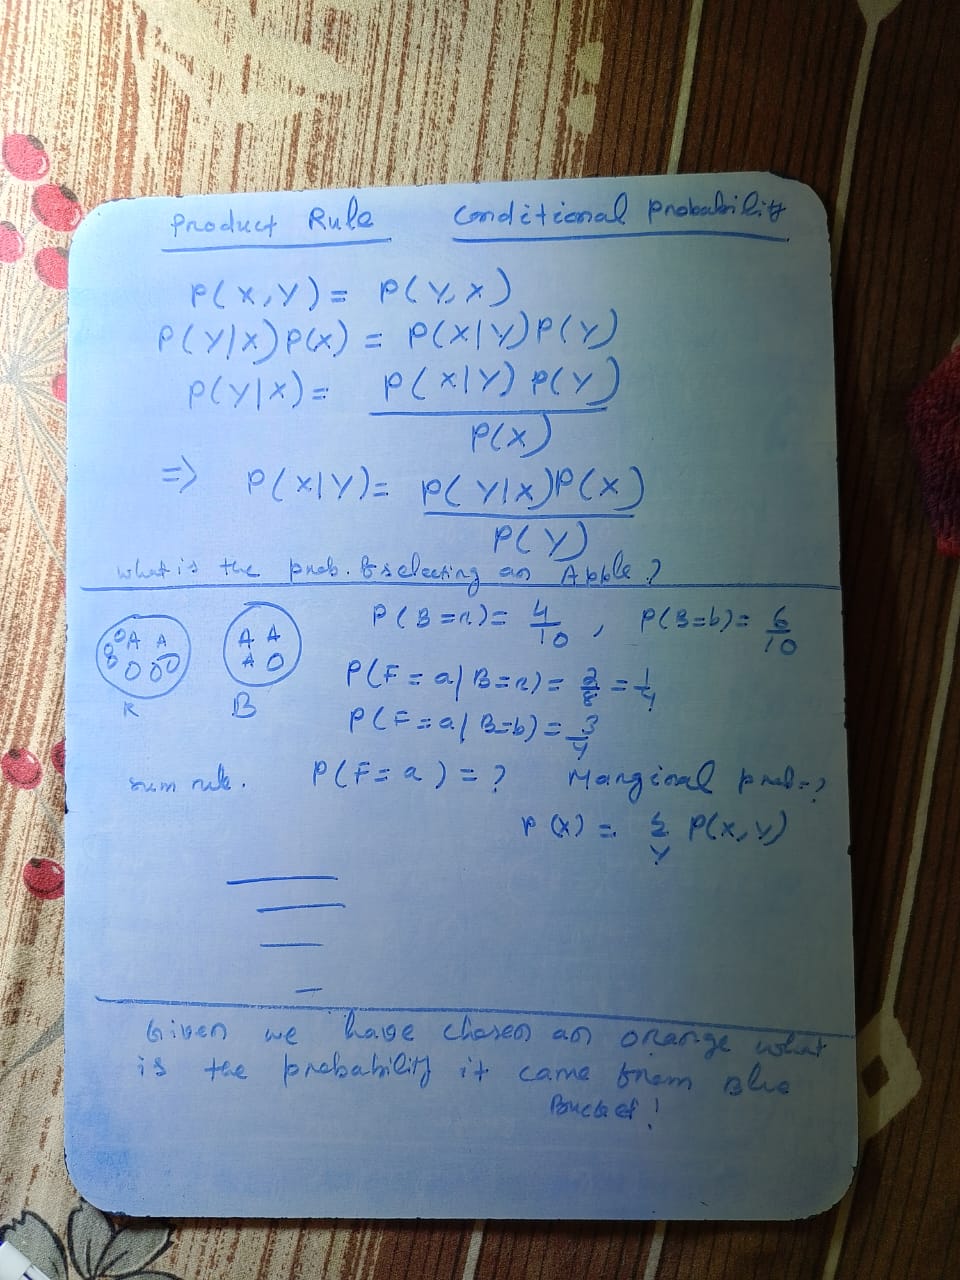 Product Rule Conditional Probability
P(X,Y) = P(Y,X)
P(Y|X)P(X) = P(X|Y)P(Y)
P(Y|X) = P(X|Y) P(Y)
P(X)
=> P(X|Y) = P(Y|X)P(X)
P(Y)
What is the prob. of selecting an Apple?
P(B=r) = 4/10 , P(B=b) = 6/10
O A A
O O O O O
A A
A O
R B
P(F=a|B=r) = 2/8 = 1/4
P(F=a|B=b) = 3/4
sum rule. P(F=a) = ? Marginal prob = ?
P(X) = Σ P(X,Y)
Y
Given we have chosen an orange what
is the probability it came from Blue
Bucket!